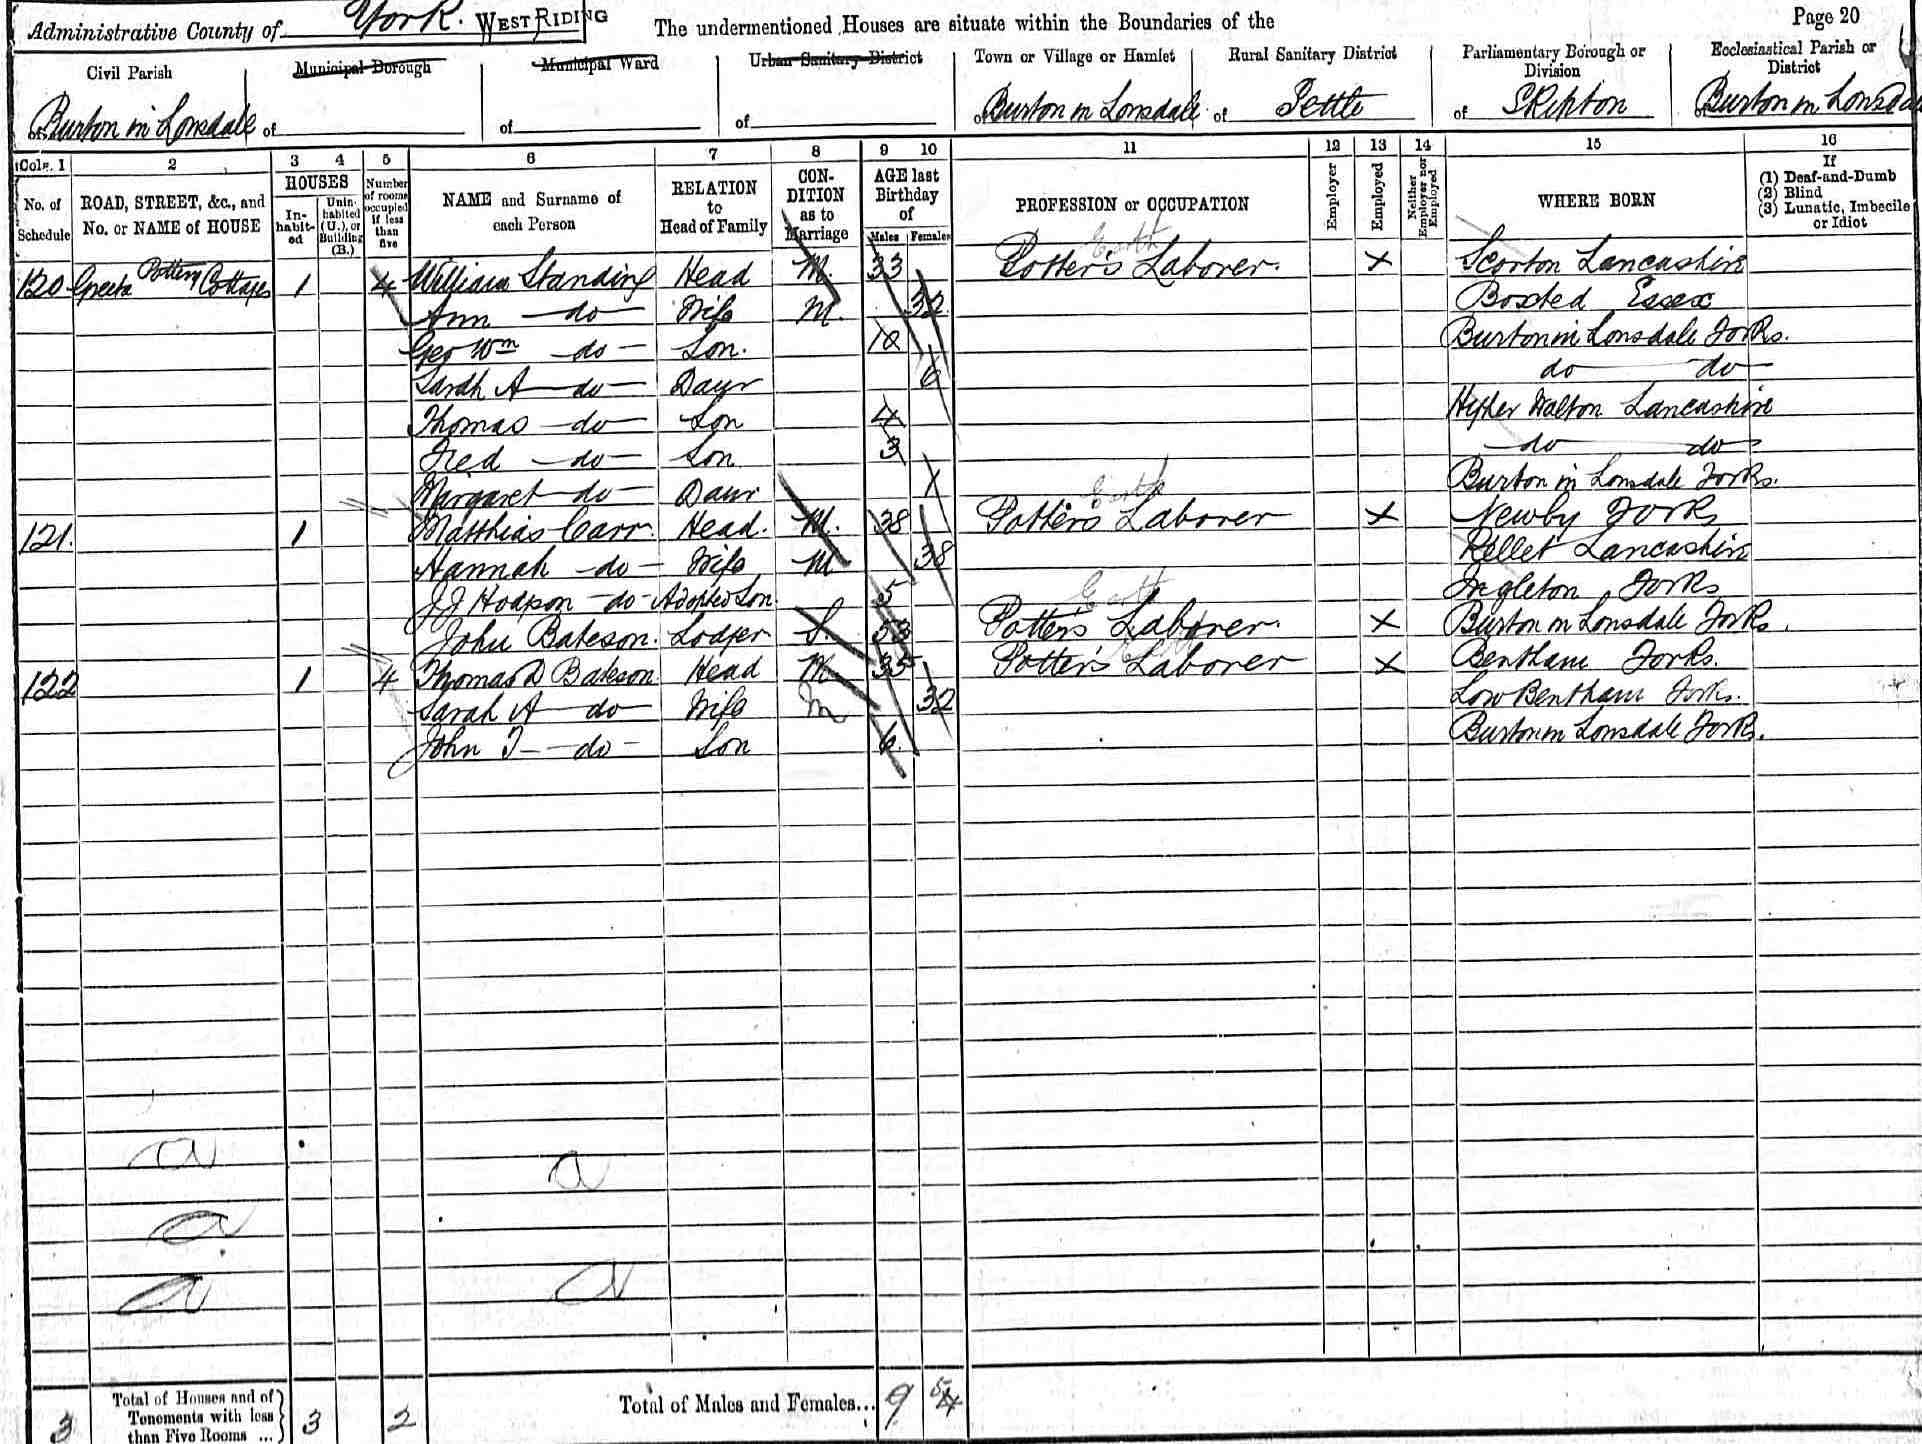 Administrative County of York. WEST RIDING The undermentioned Houses are situate within the Boundaries of the Page 20
Civil Parish Municipal Borough Municipal Ward Urban Sanitary District Town or Village or Hamlet Rural Sanitary District Parliamentary Borough or Division Ecclesiastical Parish or District
of Burton in Lonsdale of of of of Burton in Lonsdale of Settle of Skipton of Burton in Lonsdale
Cols. 1 2 3 4 5 6 7 8 9 10 11 12 13 14 15 16
No. of Schedule ROAD, STREET, &c., and No. or NAME of HOUSE HOUSES In-habit-ed Unin-habited (U.), or Building (B.) Number of rooms occupied if less than five NAME and Surname of each Person RELATION to Head of Family CON-DITION as to Marriage AGE last Birthday of Males Females PROFESSION or OCCUPATION Employer Employed Neither Employer nor Employed WHERE BORN If (1) Deaf-and-Dumb (2) Blind (3) Lunatic, Imbecile or Idiot
120 Greeta Pottery Cottages 1 4 William Standing Head M. 33 Potter's Laborer. Earth X Scorton Lancashire
Ann do Wife M. 32 Boxted Essex
Geo Wm do Son. 10 Burton in Lonsdale Yorks.
Sarah A do Daur 6 do do
Thomas do Son 4 Higher Walton Lancashire
Fred do Son 3 do do
Margaret do Daur 1 Burton in Lonsdale Yorks.
121. 1 Matthias Carr. Head. M. 38 Potter's Laborer Earth X Newby York
Hannah do Wife M 38 Kellet Lancashire
J J Hodgson do Adopted Son. 5 Ingleton Yorks
John Bateson. Lodger S. 53 Potter's Laborer. Earth X Burton in Lonsdale Yorks.
122 1 4 Thomas D Bateson Head M. 35 Potter's Laborer Earth X Bentham Yorks.
Sarah A do Wife M 32 Low Bentham Yorks.
John T do Son 6. Burton in Lonsdale Yorks.
a
a
a
a
a
3 Total of Houses and of Tenements with less than Five Rooms ... 3 2 Total of Males and Females... 9 5 4